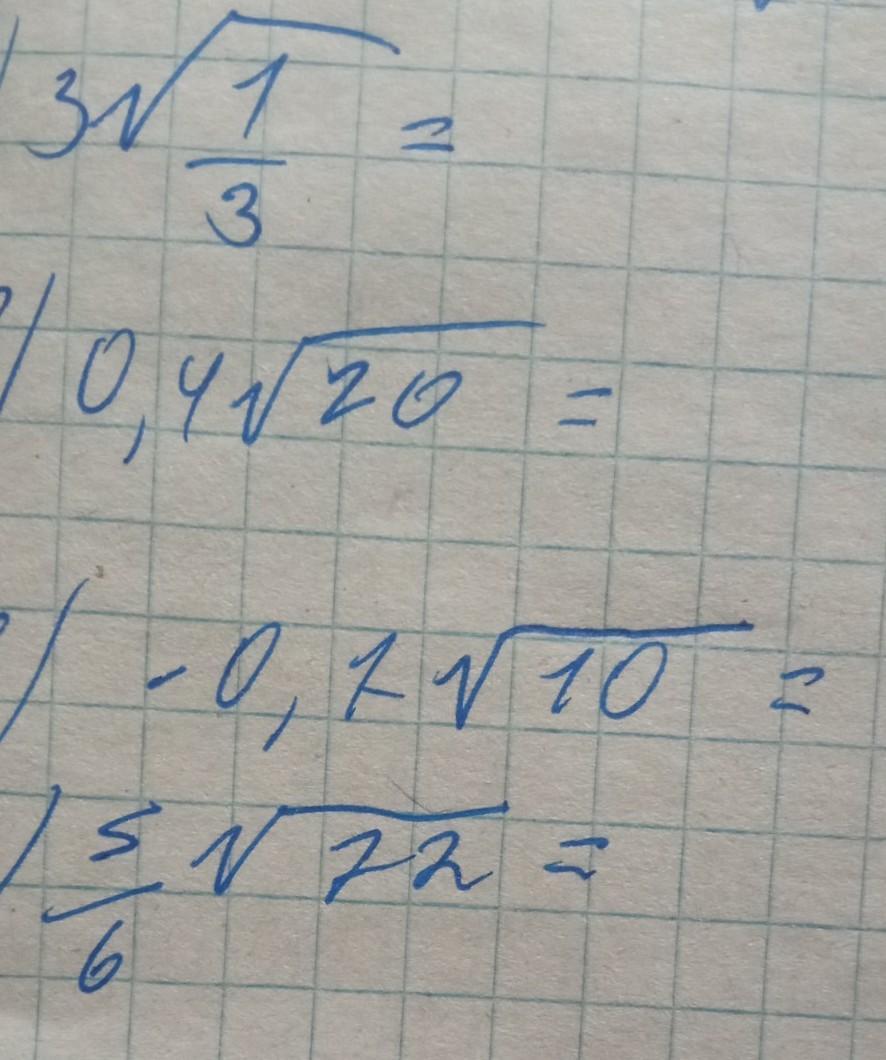 / 3√1/3 =
/ 0,4√20 =
/ -0,1√10 =
/ 5/6 √72 =